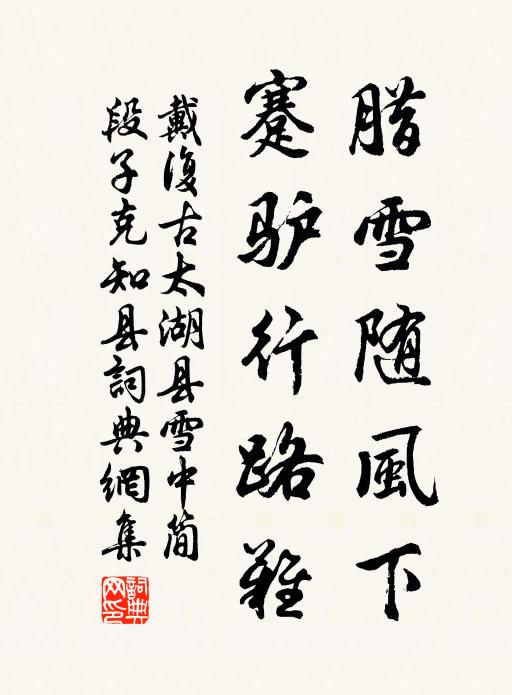 腊雪随風下
蹇驴行路難
戴復古太湖县雪中简
段子克知县詞典網集
詞典
网印